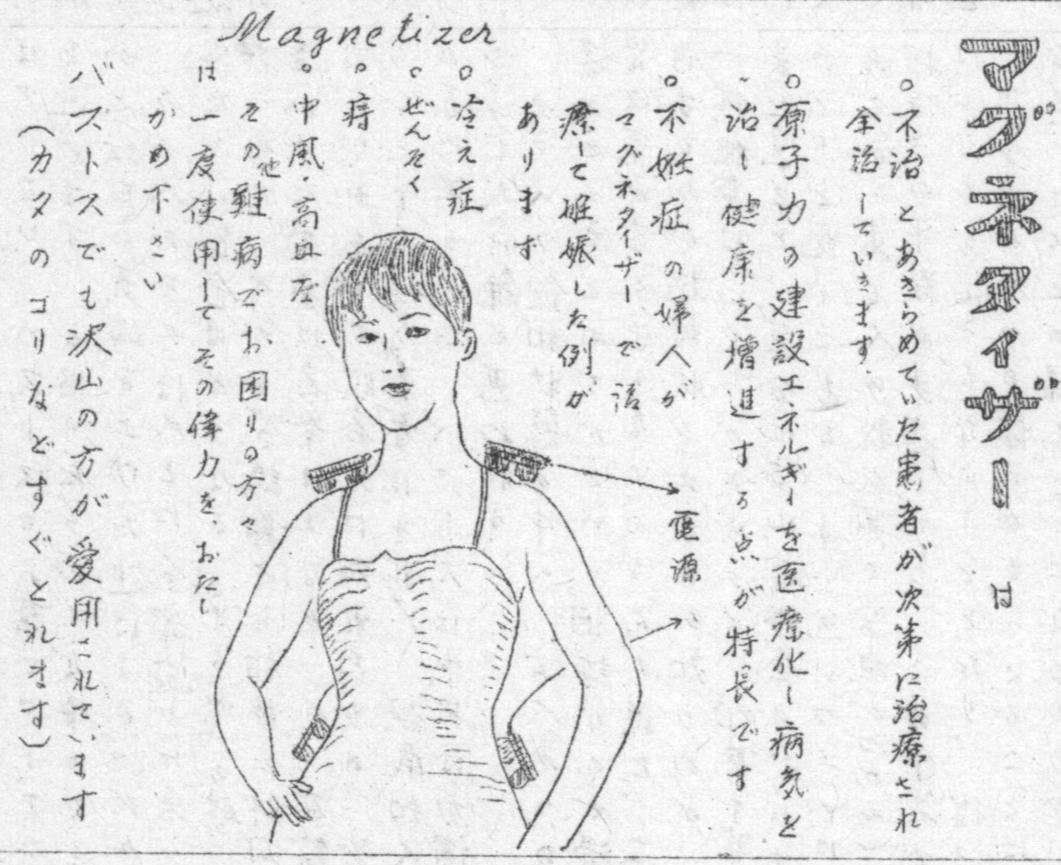 Magnetizer
マグネタィザー は
○不治とあきらめていた患者が次第に治療され
全治していきます.
○原子力の建設エネルギーを医療化し病気を
治し健康を増進する点が特長です
○不妊症の婦人が
マグネタ－ザーで治
療して姙娠した例が
あります
○冷え症
○ぜんそく
○痔
○中風・高血圧
その他難病でお困りの方々
は一度使用してその偉力をおたし
かめ下さい
バストスでも沢山の方が愛用されています
(カタのコリなどすぐとれます)
電源